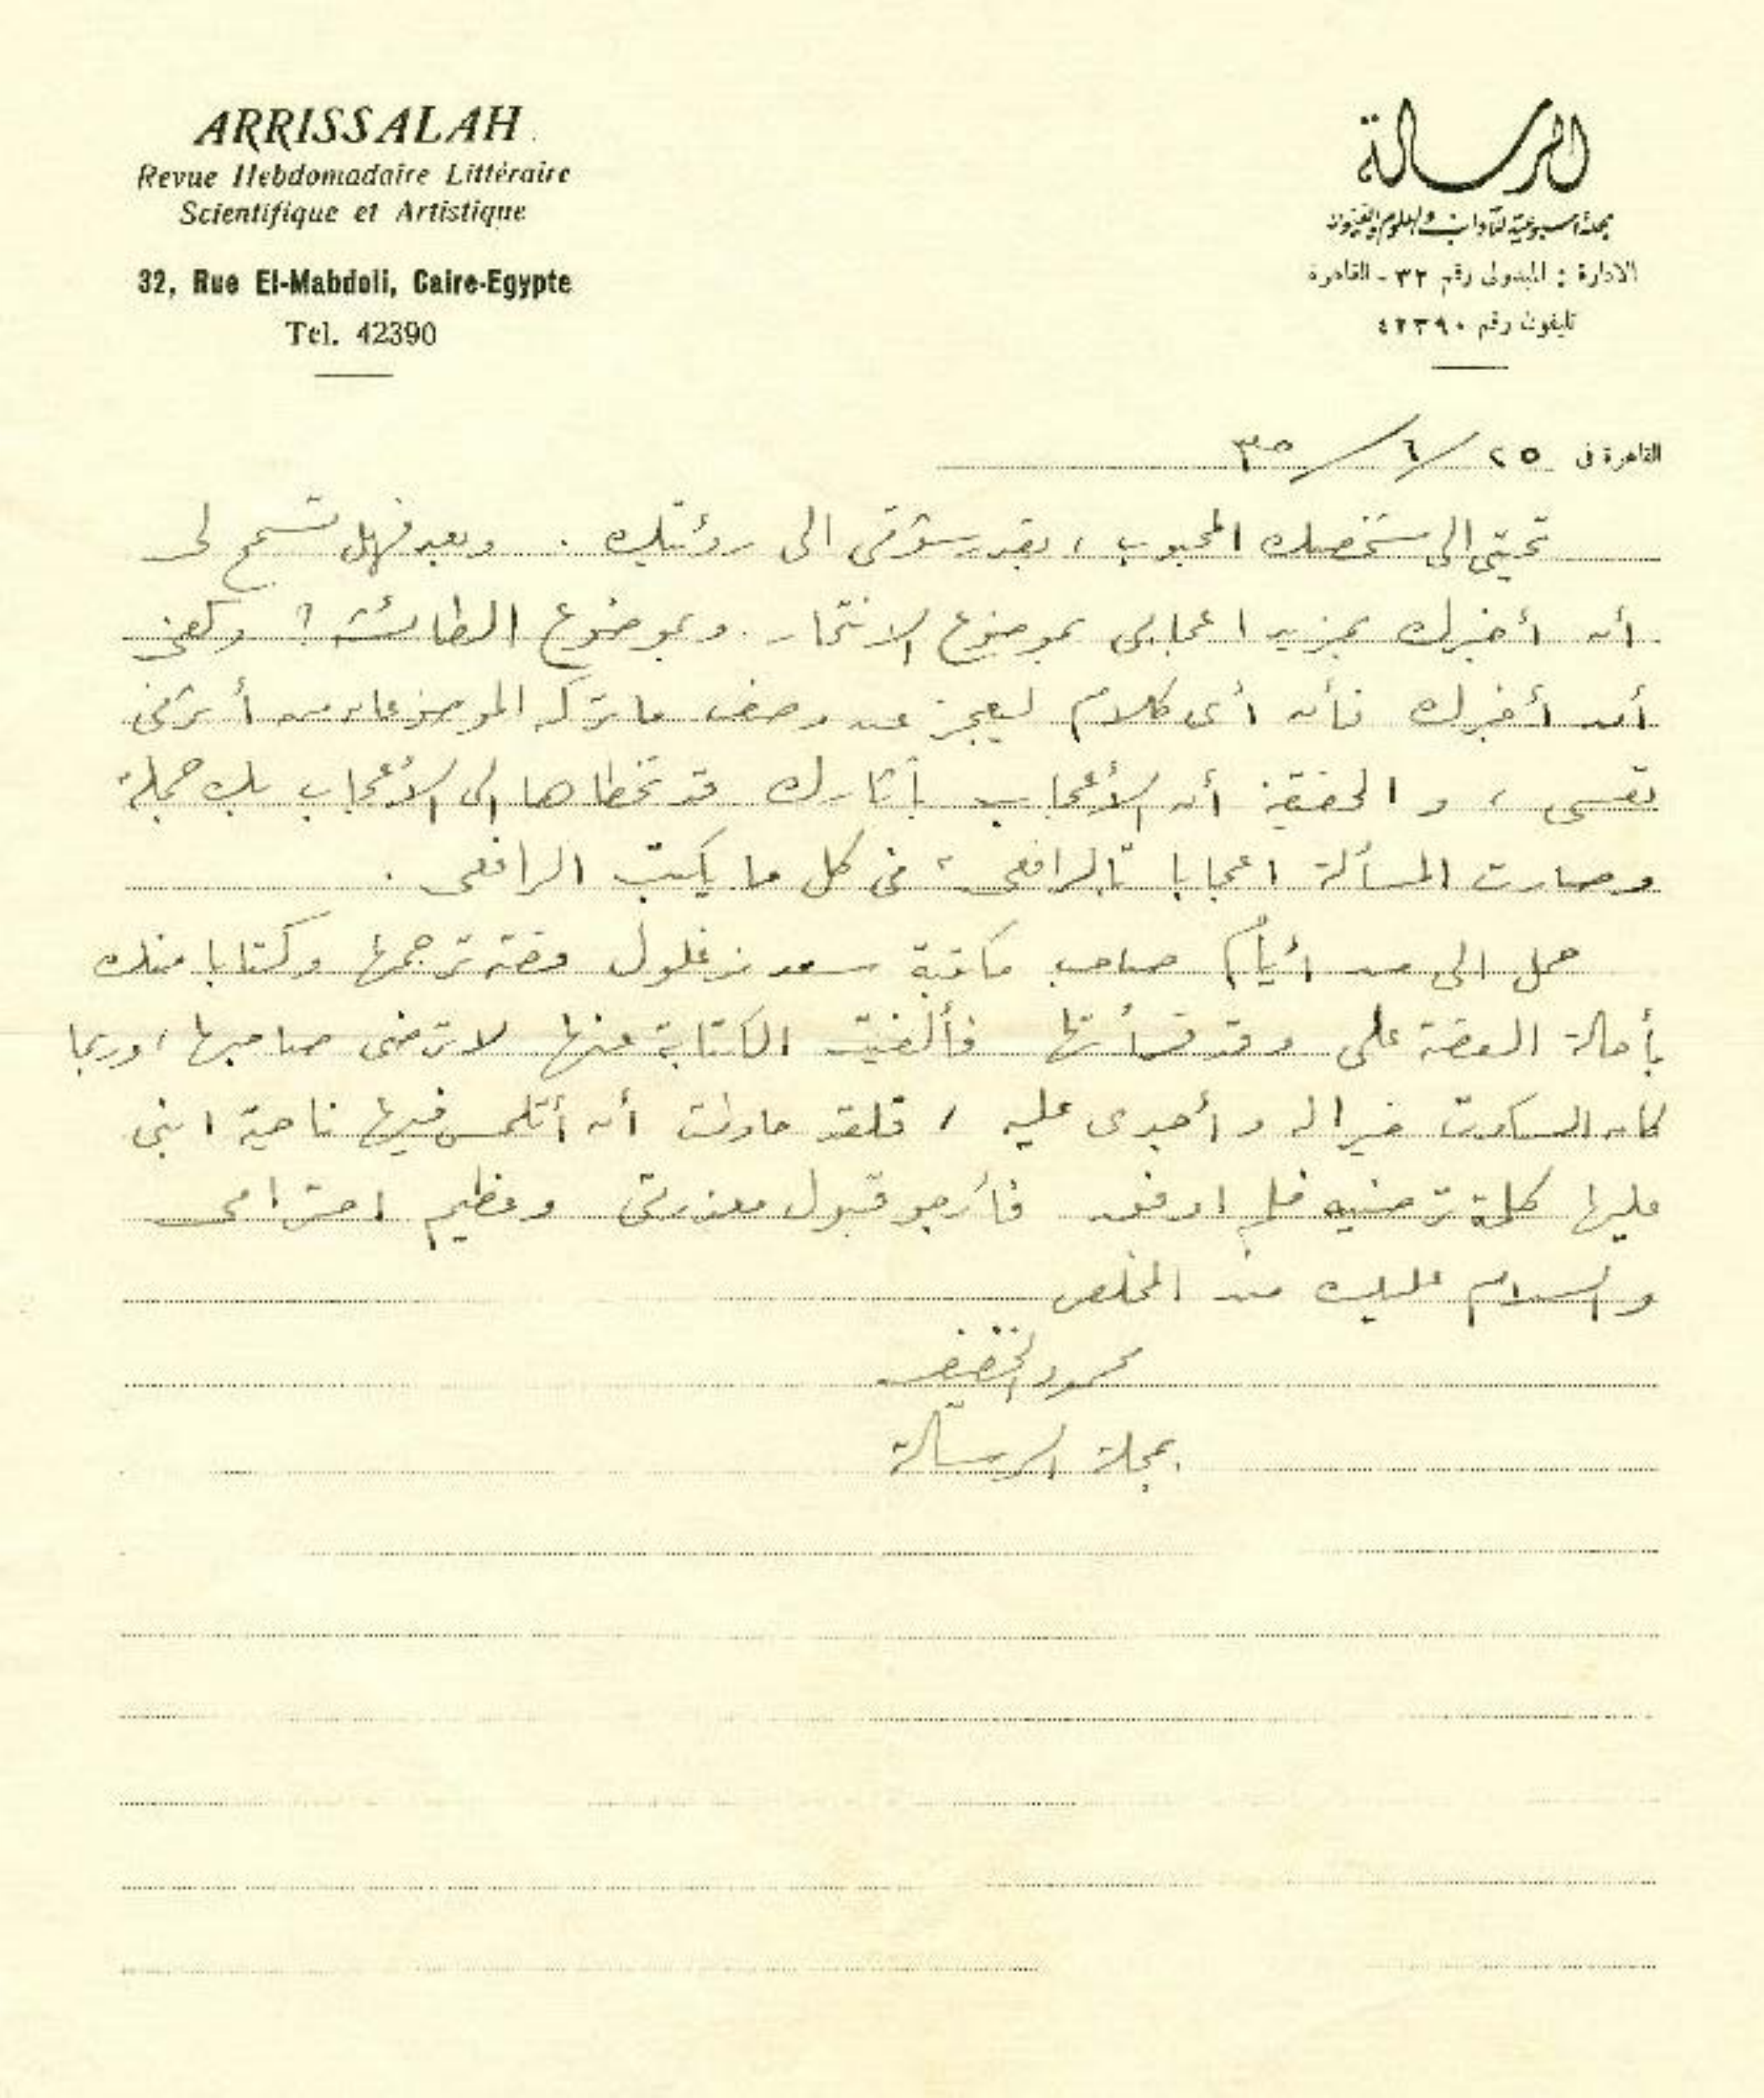 ARRISSALAH
Revue Hebdomadaire Littéraire
Scientifique et Artistique
32, Rue El-Mabdoli, Caire-Egypte
Tel. 42390
الرسالة
مجلة أسبوعية للآداب والعلوم والفنون
الادارة : المبدولى رقم ٣٢ - القاهرة
تليفون رقم ٤٢٣٩٠
القاهرة فى ٢٥/٦/٣٥
تحيتى الى شخصك المحبوب ، بقدر شوقى الى رؤيتك . وبعد فهل تسمح لى
أن أخبرك بمزيد اعجابى بموضوع الانتحار وبموضوع الطائشة ؟ وكفى
أن أخبرك فأن أى كلام ليعجز عن وصف ما تركه الموضوعان من أثر فى
نفسى ، و الحقيقة أن الأعجاب بآثارك قد تخطاها الى الأعجاب بك جملة
وصارت المسألة اعجابا بالرافعى فى كل ما يكتب الرافعى .
حمل الى من أيام صاحب مكتبة سعد زغلول قصة ترجمها وكتابا منك
بأحالة القصة على وقد قرأتها فألفيت الكتابة عنها لا ترضى صاحبها ، وربما
كان السكوت خيرا له وأجدى عليه ، فلقد حاولت أن أتلمس فيها ناحية ابنى
عليها كلمة ترضيه فلم اوفق فأرجو قبول معذرتى وعظيم احترامى
والسلام عليك من المخلص
محمود الخفيف
بمجلة الرسالة